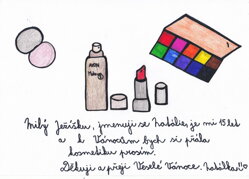 Milý Ježíšku, jmenuji se Natálie, je mi 15 let
a k Vánocům bych si přála
kosmetiku prosím.
Děkuji a přeji Veselé Vánoce. Natálka!!